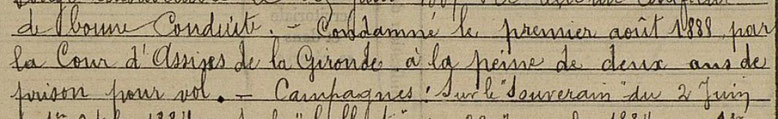 de bonne Conduite. - Condamné le premier août 1888 par
la Cour d'Assises de la Gironde à la peine de deux ans de
prison pour vol. - Campagnes : Sur le "Souverain" du 2 Juin